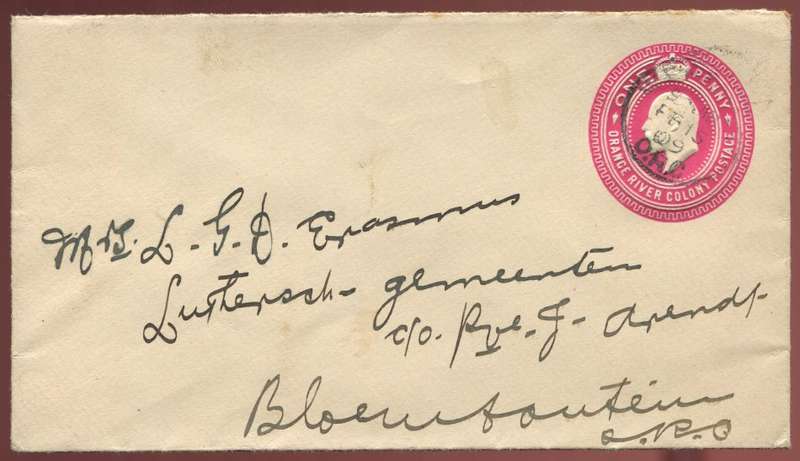 ONE PENNY
ORANGE RIVER COLONY POSTAGE
09
O.R.C.
Mrs. L. G. D. Erasmus
Luthersch- gemeenten
c/o. J. Arendt-
Bloemfontein
O.R.C